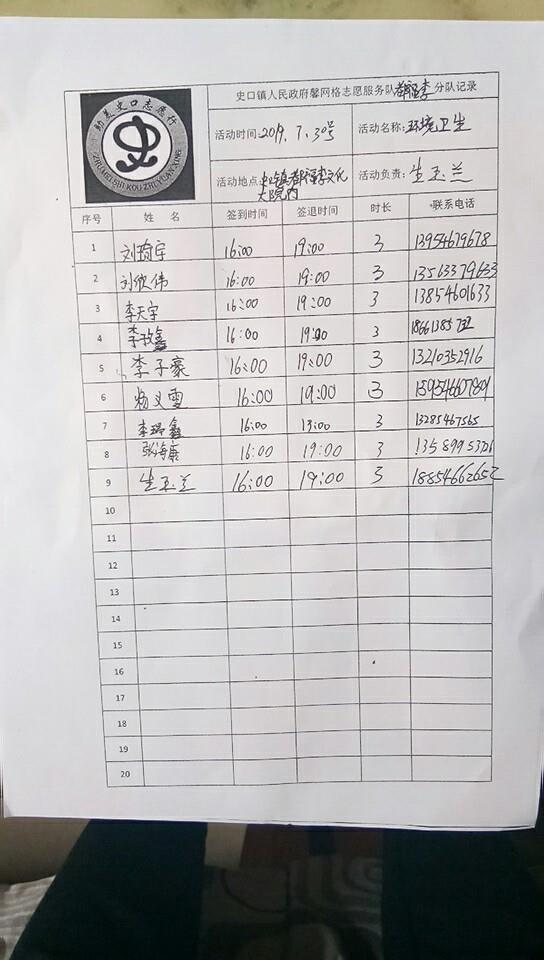 助美史口志愿行
ZHUMEI SHI KOU ZHI YUAN XING
史口镇人民政府馨网格志愿服务队郝强李分队记录
活动时间:2019.7.30号
活动名称:环境卫生
活动地点:史口镇郝强李文化
大院内
活动负责:生玉兰
序号 姓 名 签到时间 签退时间 时长 联系电话
1 刘琦宇 16:00 19:00 3 13954679678
2 刘俊伟 16:00 19:00 3 13563379633
3 李天宇 16:00 19:00 3 13854601633
4 李孜鑫 16:00 19:00 3
5 李子豪 16:00 19:00 3 13210352916
6 杨义雪 16:00 19:00 3
7 李瑞鑫 16:00 13:00 3 13285467565
8 张海康 16:00 19:00 3
9 生玉兰 16:00 19:00 3 18854662652
10
11
12
13
14
15
16
17
18
19
20